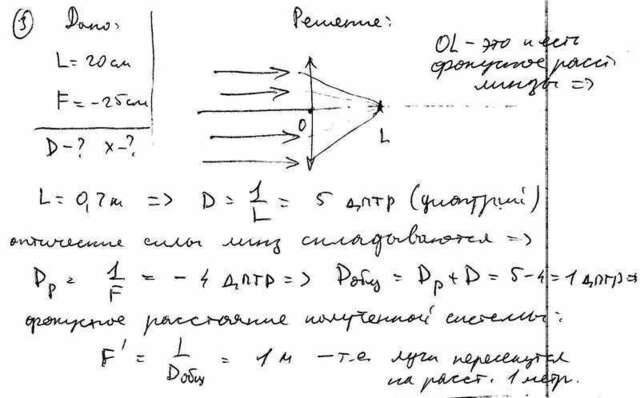 ③ Дано:
L = 20 см
F = -25 см
D - ? x - ?
Решение:
OL - это и есть
фокусное расст
линзы =>
O
L
L = 0,2 м => D = 1/L = 5 дптр (диоптрий)
оптические силы линз складываются =>
Dр = 1/F = - 4 дптр => Dобщ = Dр + D = 5 - 4 = 1 дптр =>
фокусное расстояние полученной системы:
F' = 1/Dобщ = 1 м - т.е. лучи пересекутся
на расст. 1 метр.